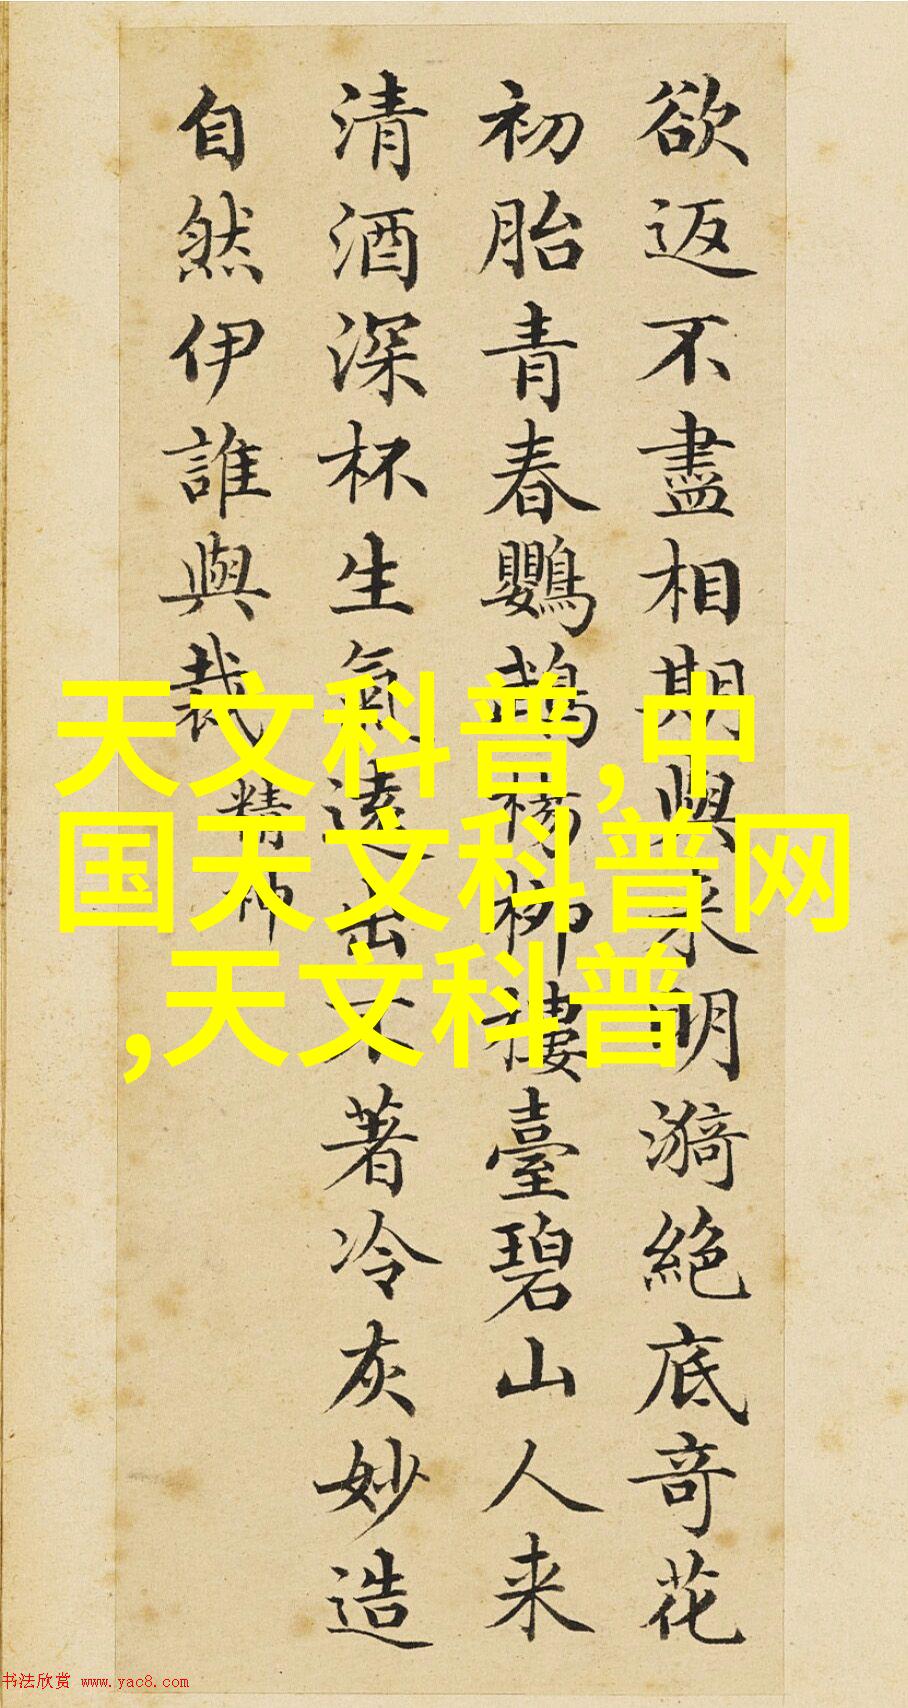 欲返不盡相期與来明漪絕底奇花
初胎青春鸚鵡楊柳樓臺碧山人来
清酒深杯生氣遠出不著冷灰妙造
自然伊誰與裁
精神
天文科普,中
国天文科普网
,天文科普
书法欣赏 www.yac8.com